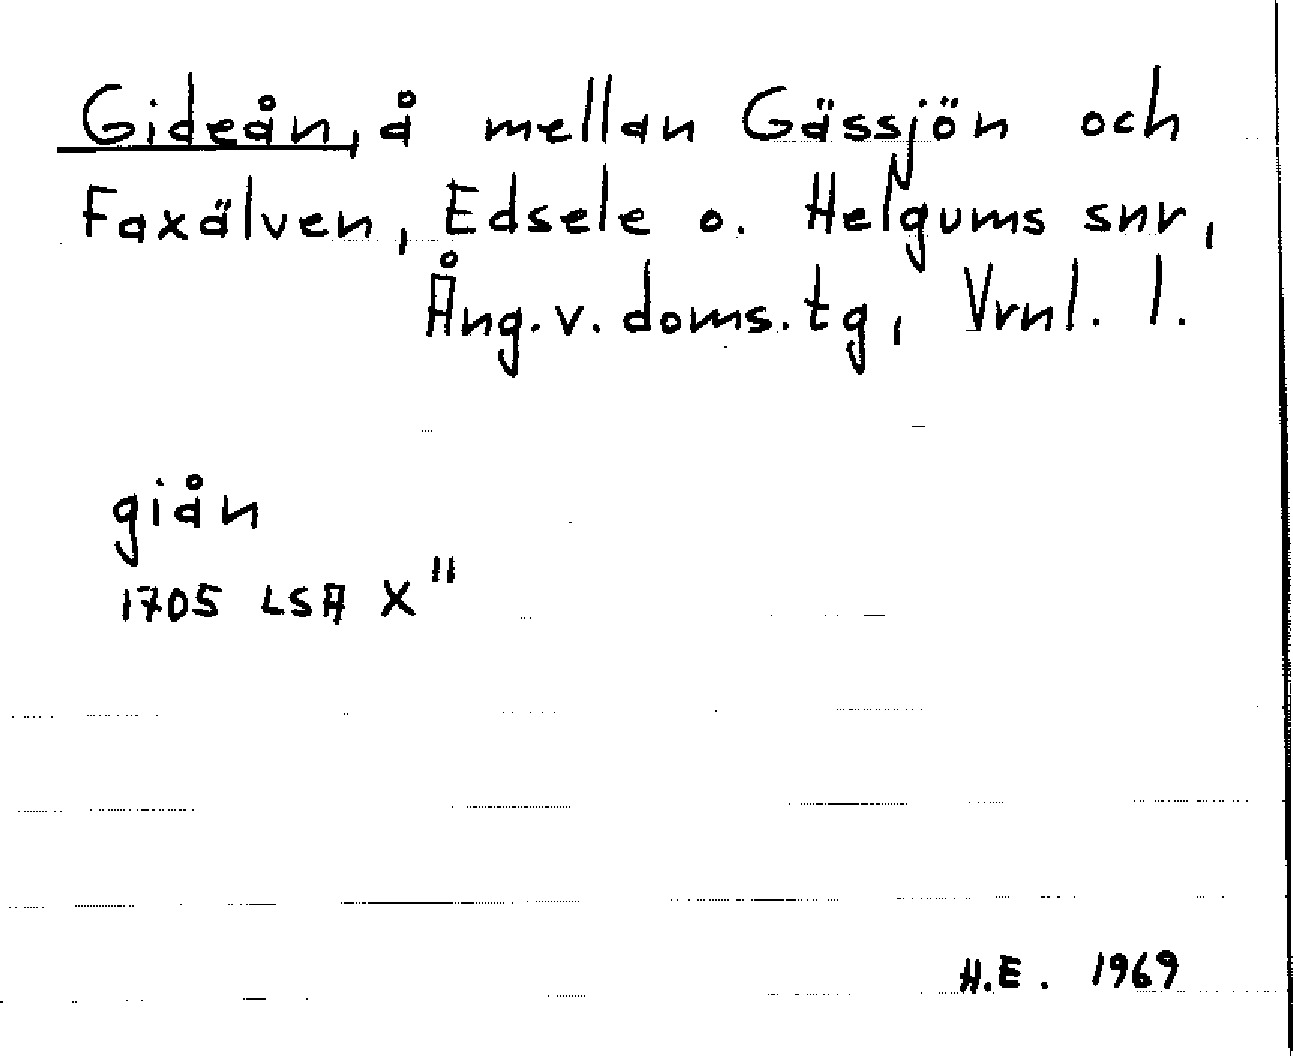 Gideån, å mellan Gässjön och
Faxälven, Edsele o. Helgums snr,
Ång.v. doms.tg, Vrnl. l.
giån
1705 LSA X"
H.E. 1969